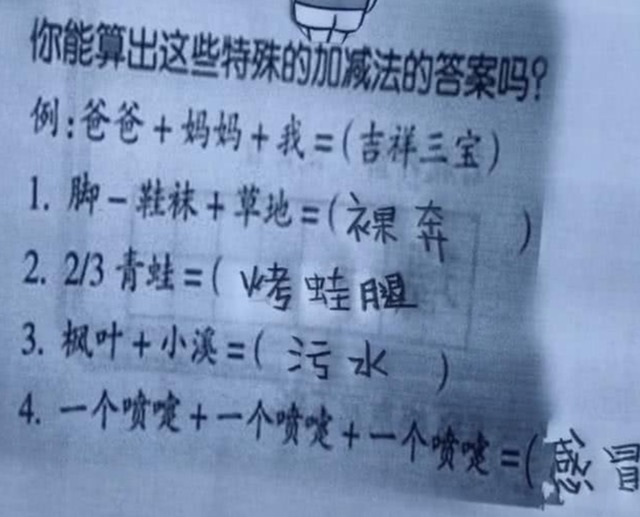 你能算出这些特殊的加减法的答案吗?
例:爸爸+妈妈+我=(吉祥三宝)
1. 脚-鞋袜+草地=(裸奔)
2. 2/3青蛙=(烤蛙腿
3. 枫叶+小溪=(污水)
4. 一个喷嚏+一个喷嚏+一个喷嚏=(感冒